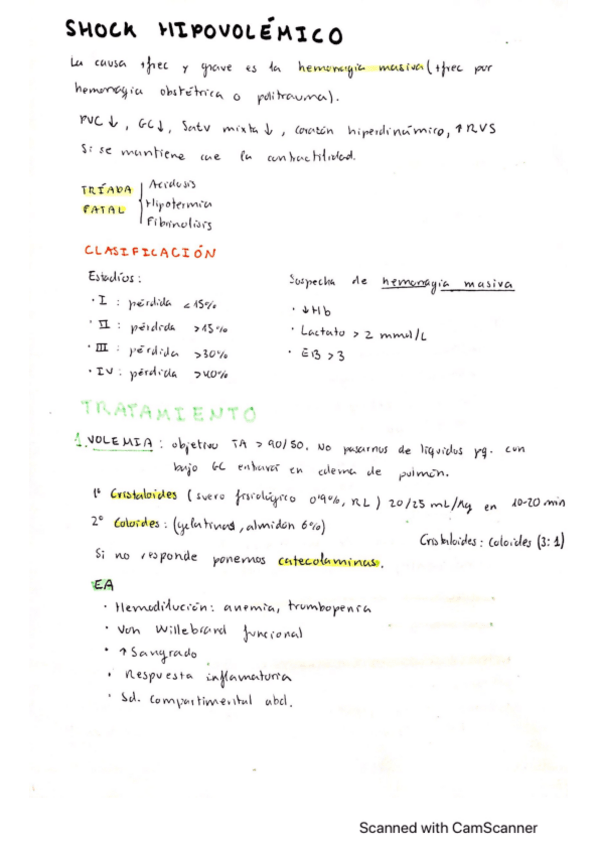 SHOCK HIPOVOLÉMICO
La causa +frec y grave es la hemorragia masiva (+frec por
hemorragia obstétrica o politrauma).
PVC ↓, GC↓, Satv mixta ↓, corazón hiperdinámico, ↑RVS
Si se mantiene cae la contractilidad.
TRÍADA FATAL
Acidosis
Hipotermia
Fibrinolisis
CLASIFICACIÓN
Estadíos:
· I : pérdida ≤ 15%
· II : pérdida >15%
· III : pérdida >30%
· IV : pérdida >40%
Sospecha de hemorragia masiva
· ↓Hb
· Lactato > 2 mmol/L
· EB > 3
TRATAMIENTO
1. VOLEMIA : objetivo TA > 90/50. No pasarnos de líquidos pq. con
bajo GC entrará en edema de pulmón.
1º Cristaloides (suero fisiológico 0'9%, RL) 20/25 mL/kg en 10-20 min
2º Coloides : (gelatinas, almidón 6%)
Cristaloides : Coloides (3:1)
Si no responde ponemos catecolaminas.
EA
· Hemodilución: anemia, trombopenia
· Von Willebrand funcional
· ↑Sangrado
· Respuesta inflamatoria
· Sd. compartimental abd.
Scanned with CamScanner